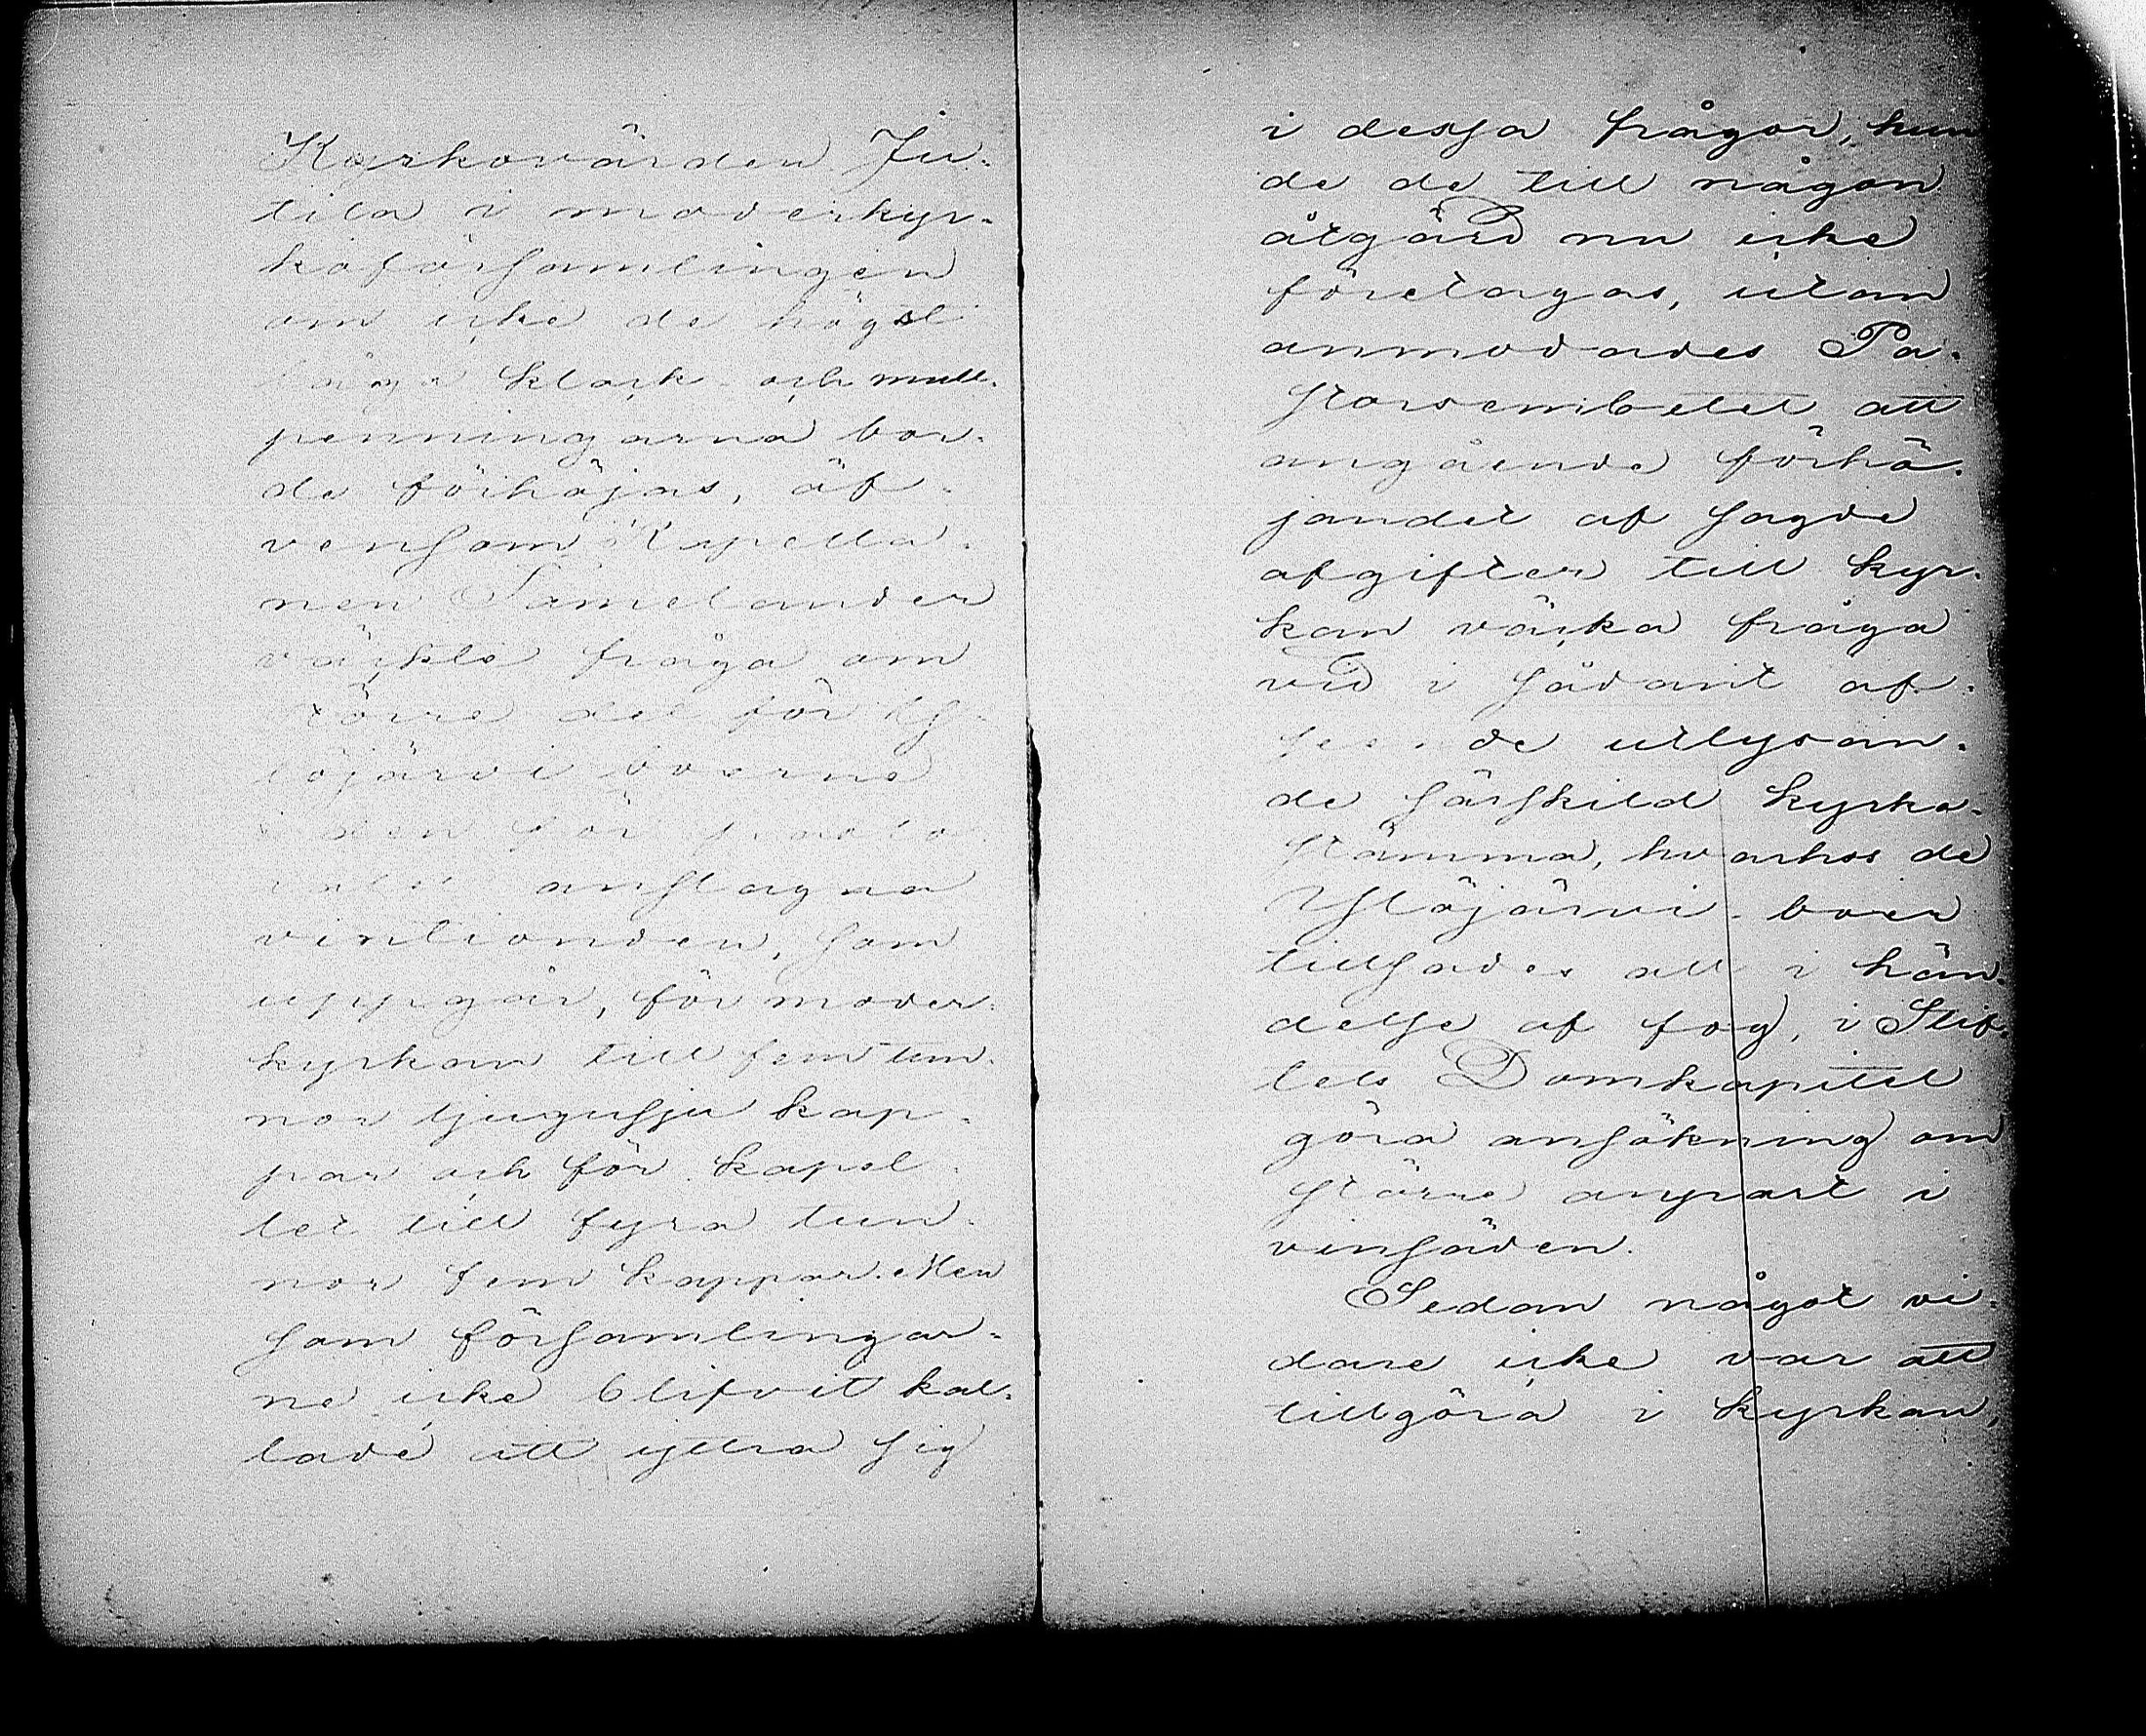 Kyrkovärden Ju-
tila i moderkyr-
koförsamlingen
om icke de högst
låga klock- och mull-
penningarna bor-
de förhöjas, äf-
vensom Kapella-
nen Lamelander
väckte fråga om
större del för Y-
löjärvi boerne
i den för
anslagna
vintionden, som
uppgår, för moder-
kyrkan till fem tun-
nor tjugusju kap-
par och för kapel-
let till fyra tun-
nor fem kappar. Men
som församlingar-
ne icke blifvit kal-
lade att yttra sig
i dessa frågor, kun
de de till någon
åtgärd nu icke
företagas, utan
anmodades Pa-
storsembetet att
angående förhö-
jandet af sagde
afgifter till kyr-
kan väcka fråga
vid i sådant af-
seende utlysan-
de särskild kyrko-
stämma, hvarhos de
Ylöjärvi-boer
tillsades att i hän-
delse af fog, i Stif-
tets Domkapitel
göra ansökning om
större anpart i
vinsäden.
Sedan något vi-
dare icke var att
tillgöra i kyrkan,